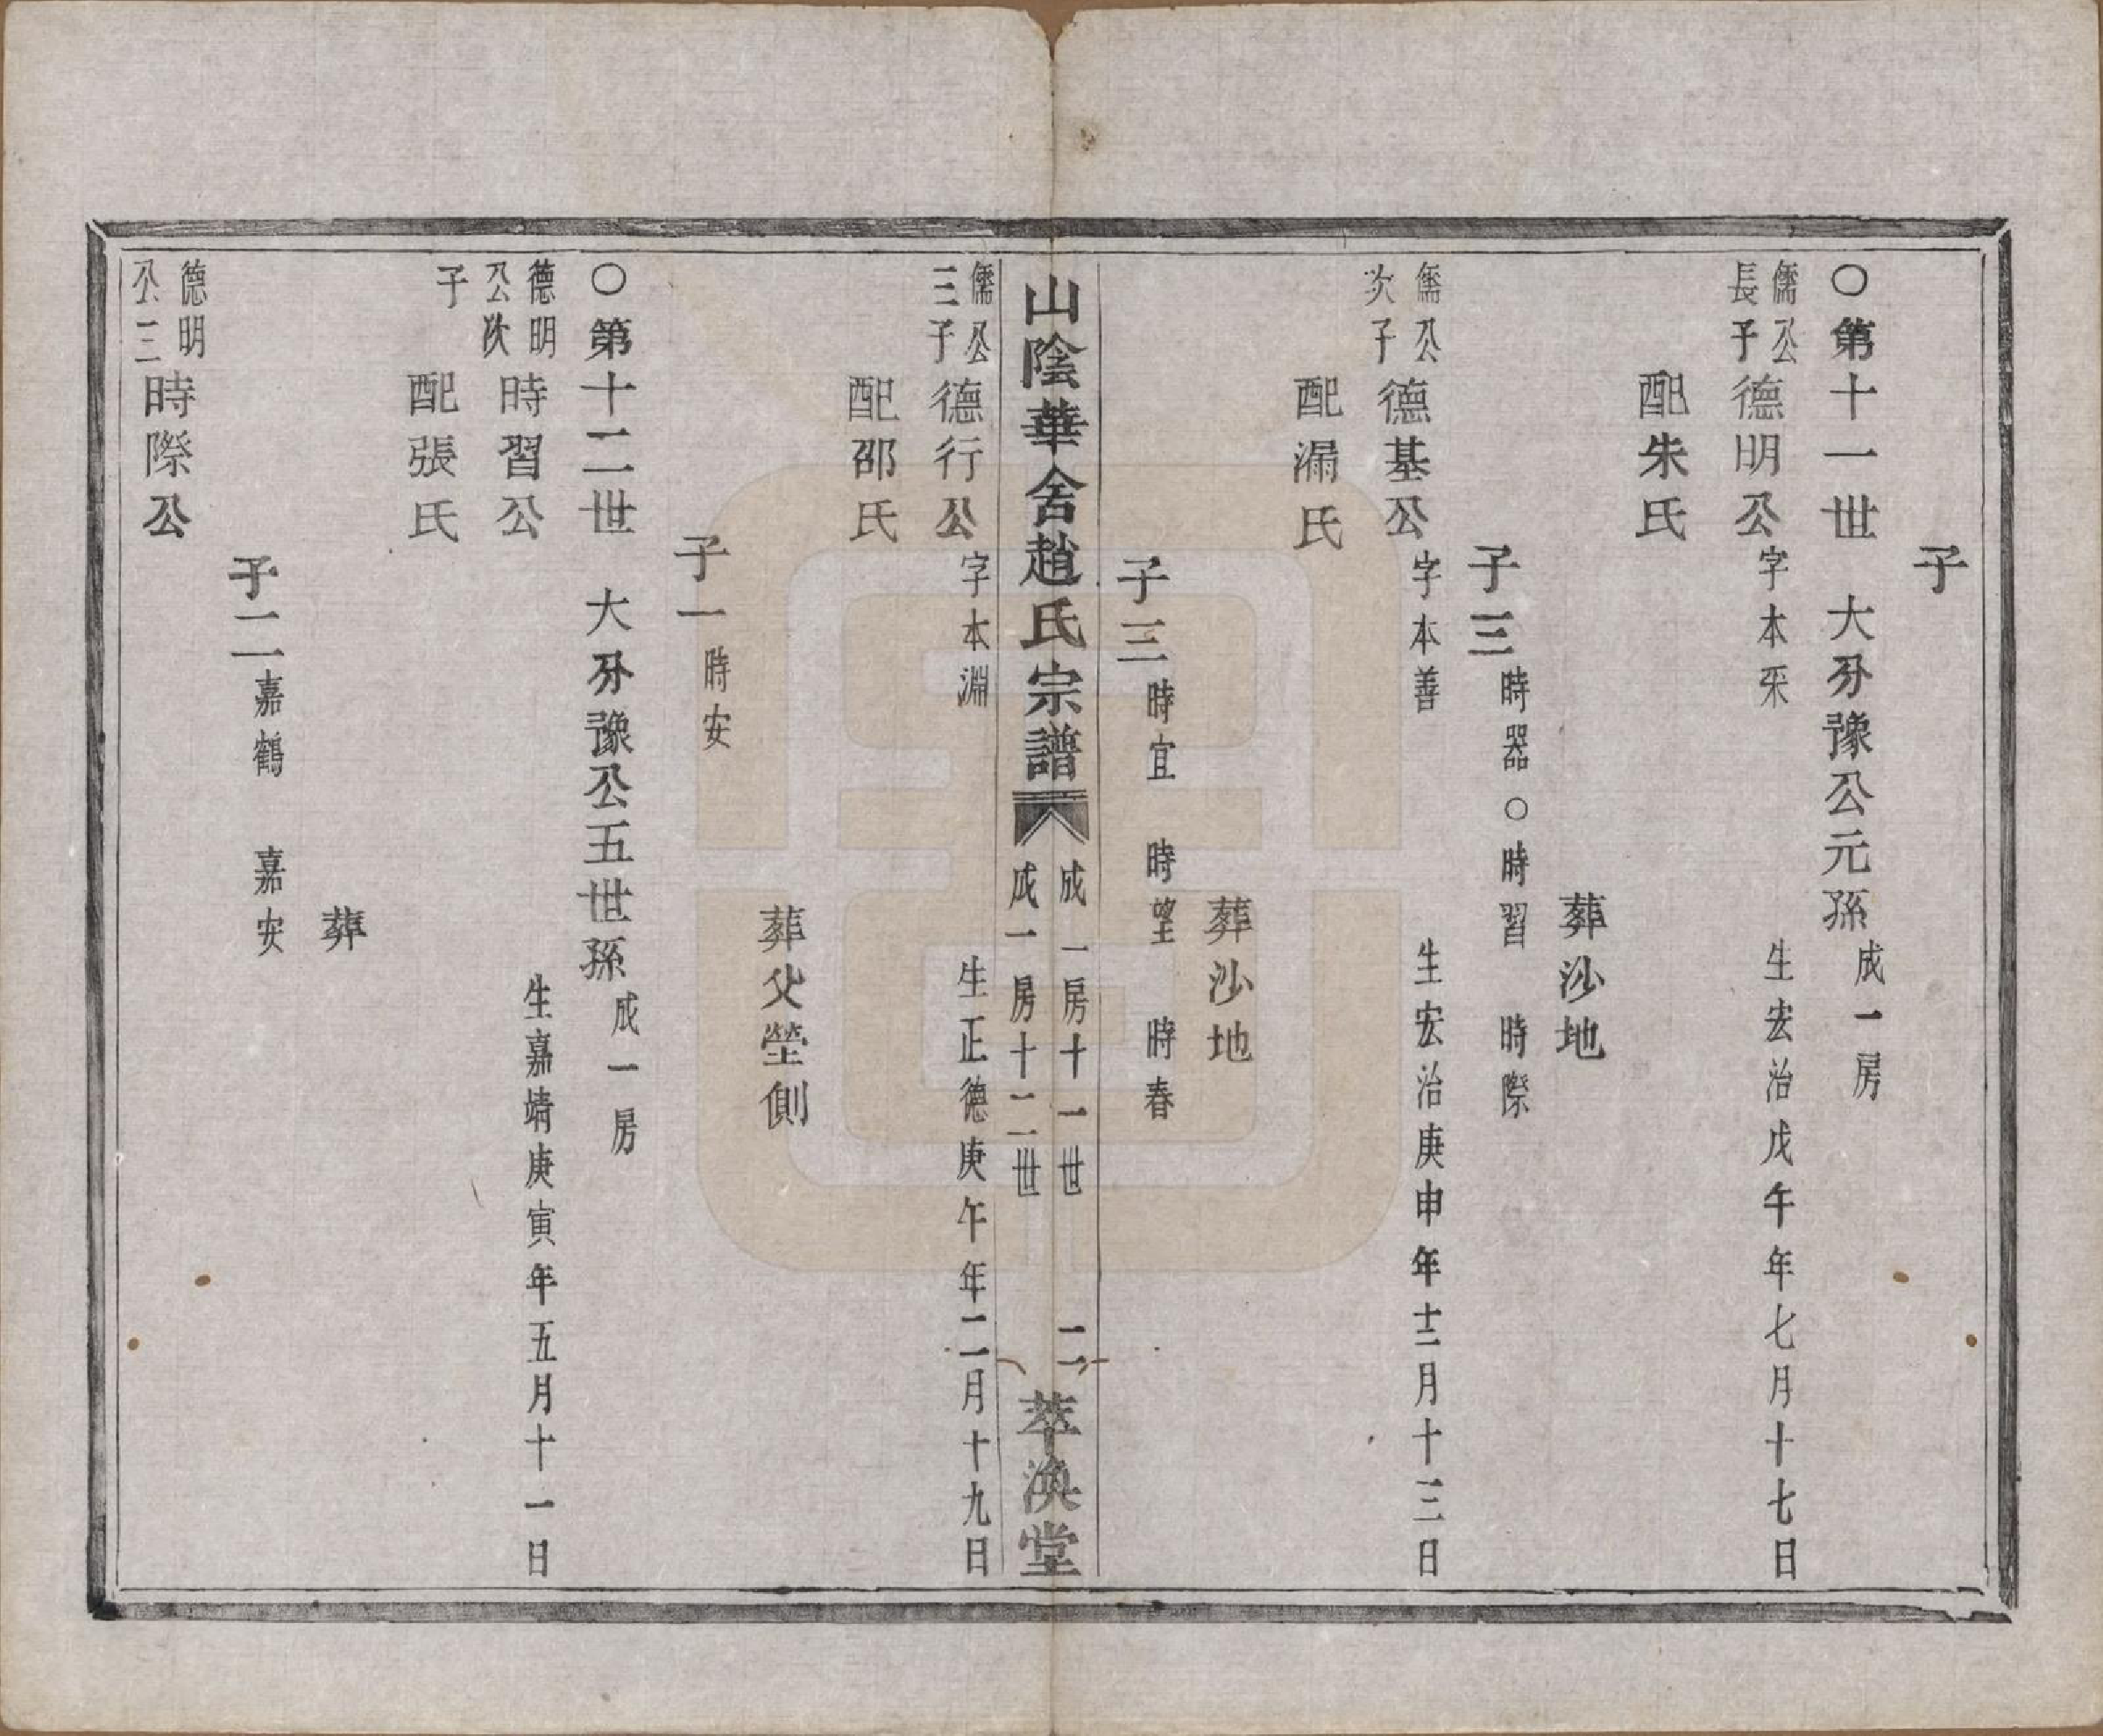 子
○第十一世　大分豫公元孫　成一房
儒公長子　德明公　字本采　生宏治戊午年七月十七日
配朱氏
葬沙地
子三　時器○時習　時際
儒公次子　德基公　字本善　生宏治庚申年十二月十三日
配漏氏
葬沙地
子三　時宜　時望　時春
山陰華舍趙氏宗譜　成一房十一世　成一房十二世　二　萃渙堂
儒公三子　德行公　字本淵　生正德庚午年二月十九日
配邵氏
葬父塋側
子一　時安
○第十二世　大分豫公五世孫　成一房
德明公次子　時習公　生嘉靖庚寅年五月十一日
配張氏
葬
子二　嘉鶴　嘉安
德明公三　時際公